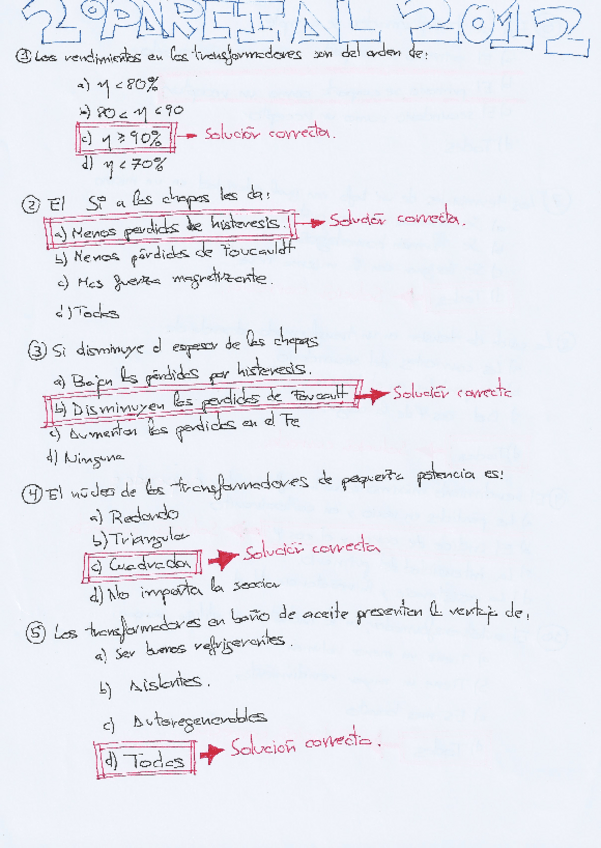 2º PARCIAL 2012
① Los rendimientos en los transformadores son del orden de:
a) η < 80%
b) 80 < η < 90
c) η ≥ 90% → Solución correcta.
d) η < 70%
② El Si a las chapas les da:
a) Menos perdidas de histeresis. → Solución correcta.
b) Menos pérdidas de Foucault.
c) Mas fuerza magnetizante.
d) Todas
③ Si disminuye el espesor de las chapas
a) Bajan las pérdidas por histeresis.
b) Disminuyen las perdidas de Foucault → Solución correcta
c) Aumentan las perdidas en el Fe
d) Ninguna
④ El núcleo de los transformadores de pequeña potencia es:
a) Redondo
b) Triangular
c) Cuadrada → Solución correcta
d) No importa la seccion
⑤ Los transformadores en baño de aceite presentan la ventaja de:
a) Ser buenos refrigerantes.
b) Aislantes.
c) Autoregenerables
d) Todas → Solución correcta.